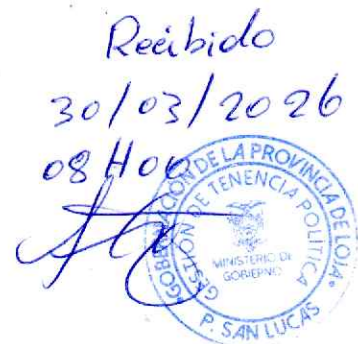 Recibido
30/03/2026
08H00
GOBERNACIÓN DE LA PROVINCIA DE LOJA
GESTIÓN DE TENENCIA POLÍTICA
MINISTERIO DE
GOBIERNO
P. SAN LUCAS